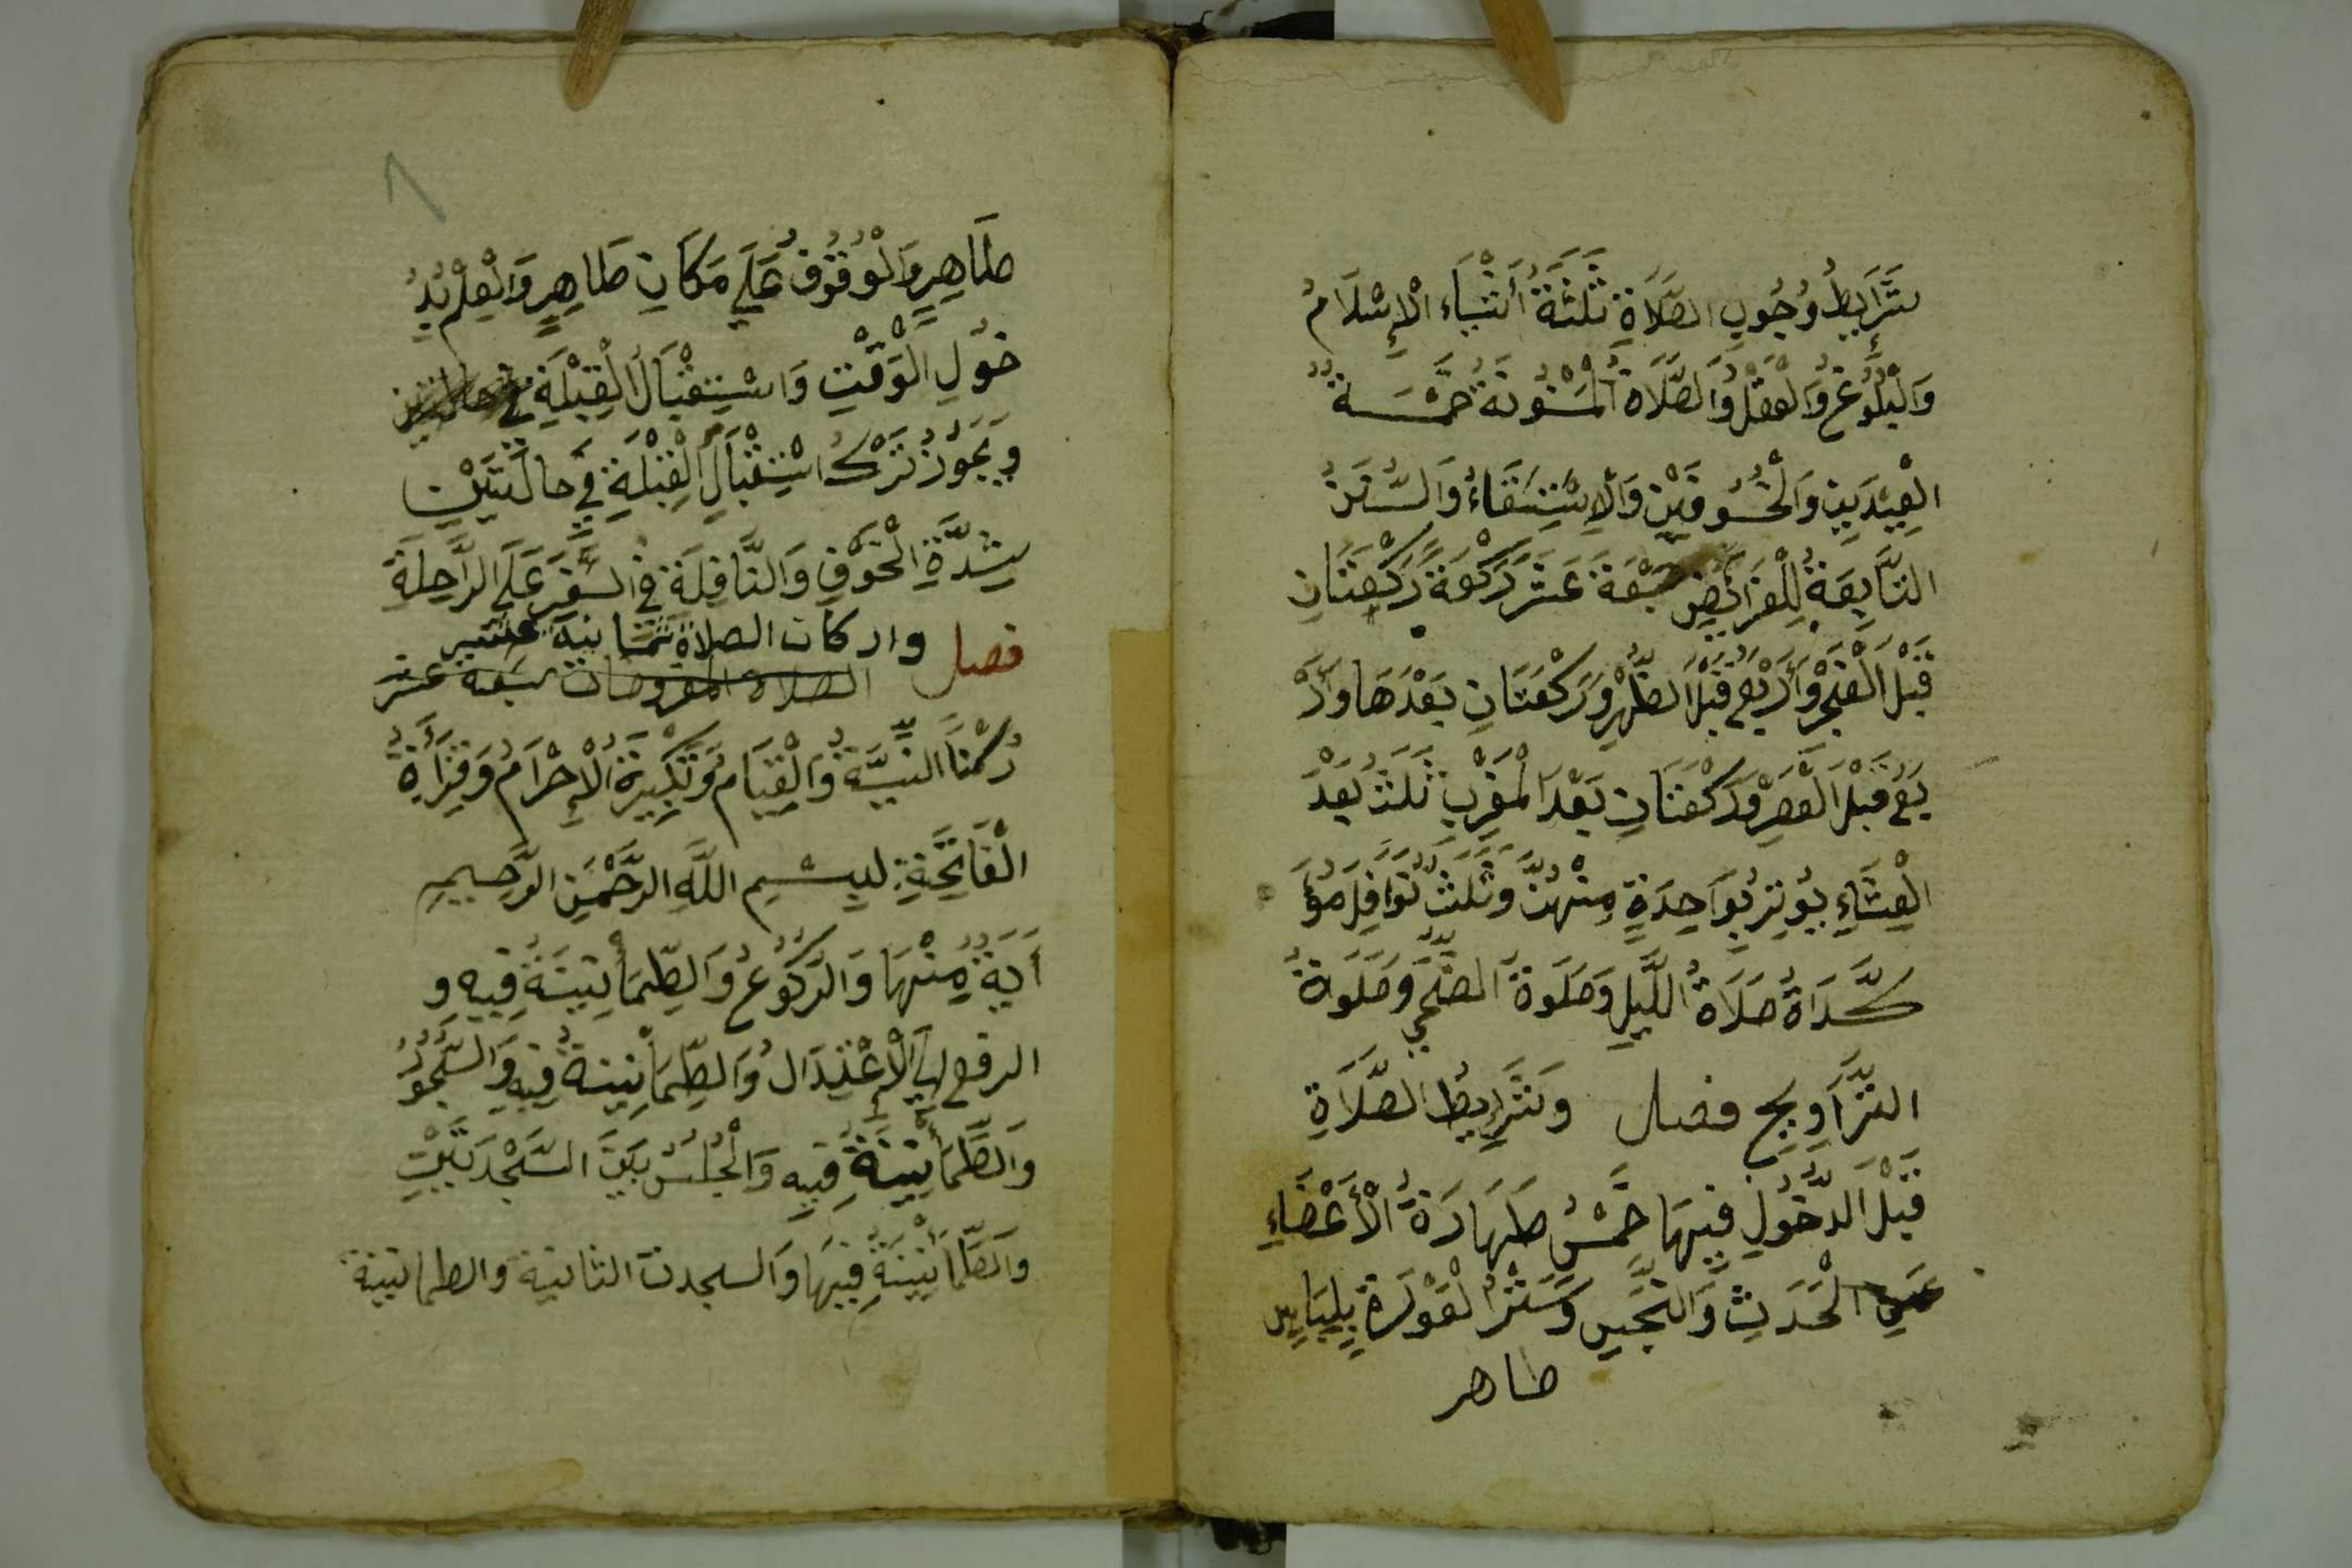 شَرَايِطُ وُجُوبِ الصَّلَاةِ ثَلَثَةُ أَشْيَاء الْإِسْلَامُ
وَالْبُلُوغُ وَالْعَقْلُ وَالصَّلَاةُ الْمَسْنُونَةُ خَمْسَةٌ
الْعِيْدَيْنِ وَالْخُسُوفَيْنِ وَالْاِسْتِسْقَاءُ وَالسُّنَنُ
التَّابِعَةُ لِلْفَرَائِضِ سَبْعَةَ عَشَرَ رَكْعَةً رَكْعَتَانِ
قَبْلَ الْفَجْرِ وَأَرْبَعٌ قَبْلَ الظُّهْرِ وَرَكْعَتَانِ بَعْدَهَا وَأَرْ
بَعٌ قَبْلَ الْعَصْرِ وَرَكْعَتَانِ بَعْدَ الْمَغْرِبِ ثَلَثٌ بَعْدَ
الْعِشَاءِ يُوتِرُ بِوَاحِدَةٍ مِنْهُنَّ وَثَلَثُ نَوَافِلَ مُؤَ
كَّدَاةٌ صَلَاةُ اللَّيْلِ وَصَلَوةُ الضُّحَي وَصَلَوةُ
التَّرَاوِيحِ فصل وَشَرَايِطُ الصَّلَاةِ
قَبْلَ الدُّخُولِ فِيهَا خَمْسٌ طَهَارَةُ الْأَعْضَاءِ
عَنِ الْحَدَثِ وَالنَّجَسِ وَسَتْرُ الْعَوْرَةِ بِلِبَاسٍ
طاهر
٨
طَاهِرٍ وَالْوُقُوفُ عَلَي مَكَانٍ طَاهِرٍ وَالْعِلْمُ بِدُ
خُولِ الْوَقْتِ وَاسْتِقْبَالُ الْقِبْلَةِ في
وَيَجُوزُ تَرْكُ اسْتِقْبَالِ الْقِبْلَةِ فِي حَالَتَيْنِ
شِدَّةِ الْخَوْفِ وَالنَّافِلَةِ فِي السَّفَرِ عَلَي الرَّاحِلَةِ
فصل واركان الصلاة ثمانية عشر
الصلاة المفروضات سبعة عشر
رُكْنًا النِّيَّةُ وَالْقِيَامُ وَتَكْبِيرَةُ الْإِحْرَامُ وَقِرَأَةُ
الْفَاتِحَةِ بِسْمِ اللَّهِ الرَّحْمَنِ الرَّحِيمِ
آيَةٌ مِنْهَا وَالرُّكُوعُ وَالطِّمَأْنِينَةُ فِيهِ و
الرفع الْاِعْتِدَالُ وَالطِّمَأْنِينَةُ فِيهِ وَالسُّجُودُ
وَالطُّمَأْنِينَةُ فِيهِ وَالْجُلُسُ بَيْنَ السَّجْدَتَيْنِ
وَالطُّمَأْنِينَةُ فِيهَا وَالسجدت الثانية والطمانينة